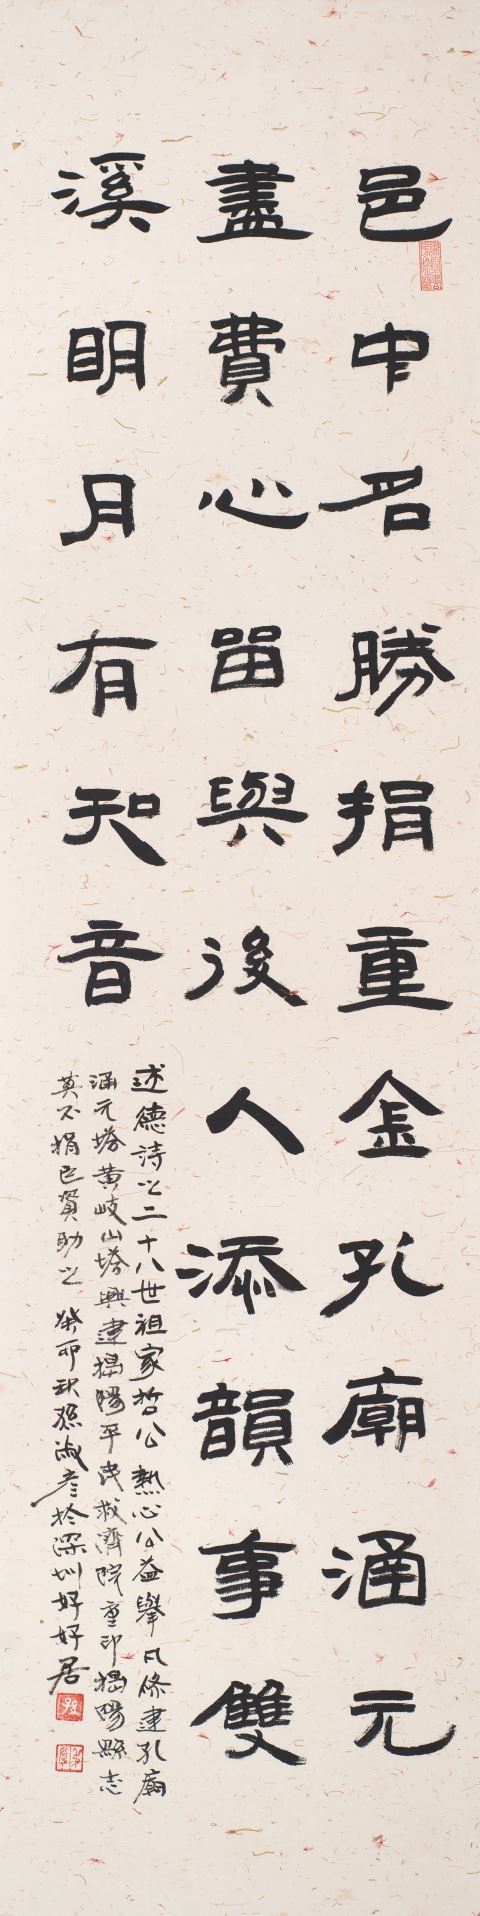 邑中名勝捐重金孔廟涵元
盡費心留與後人添韻事雙
溪明月有知音
述德詩之二十八世祖家哲公熱心公益舉凡修建孔廟
涵元塔黃岐山塔興建揭陽平民救濟院重印揭陽縣志
莫不捐巨資助之癸卯秋孫淑彥於深圳好好居